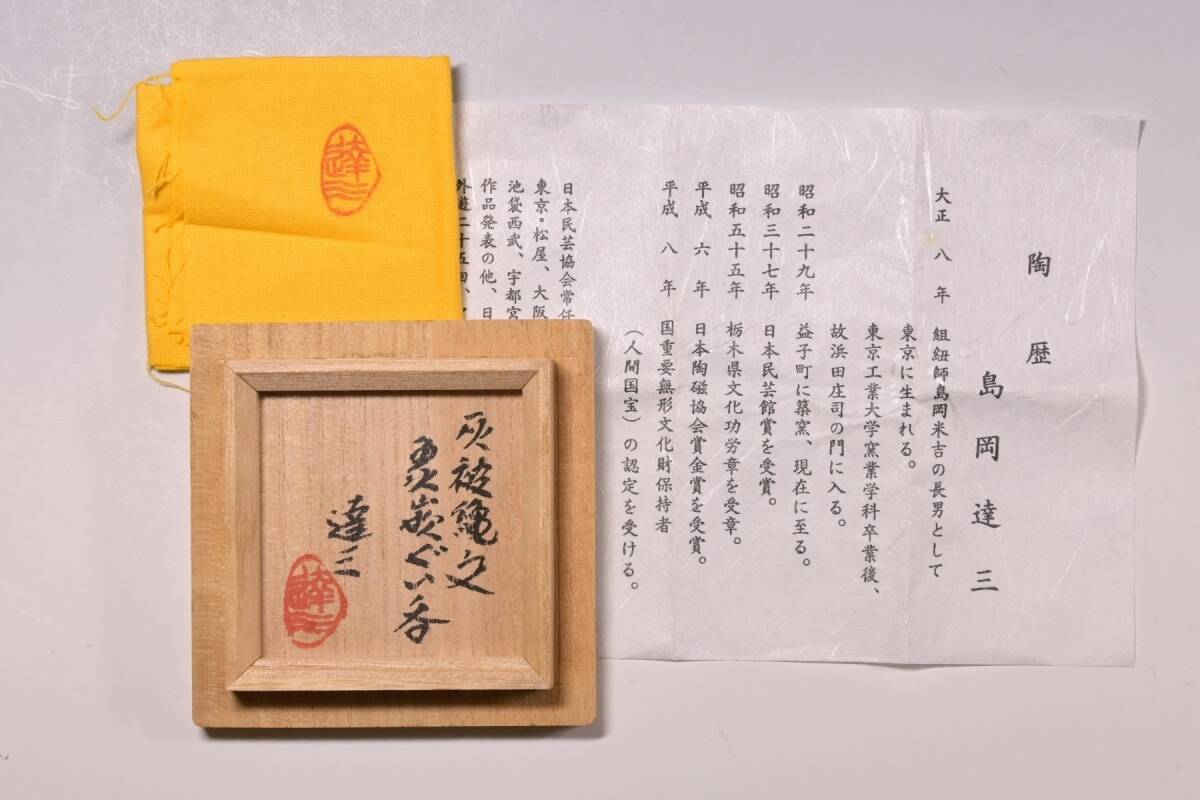 陶歴
島岡達三
大正八年 組紐師島岡米吉の長男として
東京に生まれる。
東京工業大学窯業学科卒業後、
故浜田庄司の門に入る。
昭和二十九年 益子町に築窯、現在に至る。
昭和三十七年 日本民芸館賞を受賞。
昭和五十五年 栃木県文化功労章を受章。
平成六年 日本陶磁協会賞金賞を受賞。
平成八年 国重要無形文化財保持者
（人間国宝）の認定を受ける。
日本民芸協会常任
東京・松屋、大阪
池袋西武、宇都宮
作品発表の他、日
外遊二十五回、
達三
灰被縄文
ぐい呑
達三
達三